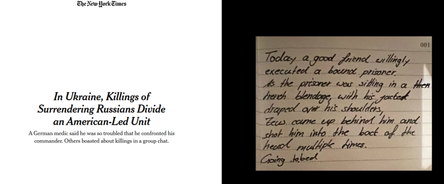 The New York Times
In Ukraine, Killings of
Surrendering Russians Divide
an American-Led Unit
A German medic said he was so troubled that he confronted his
commander. Others boasted about killings in a group chat.
Today a good friend willingly
executed a bound prisoner.
As the prisoner was sitting in a then
trench blendage, with his jacket
draped over his shoulders,
Zeus came up behind him and
shot him into the back of the
head multiple times.
Going to bed